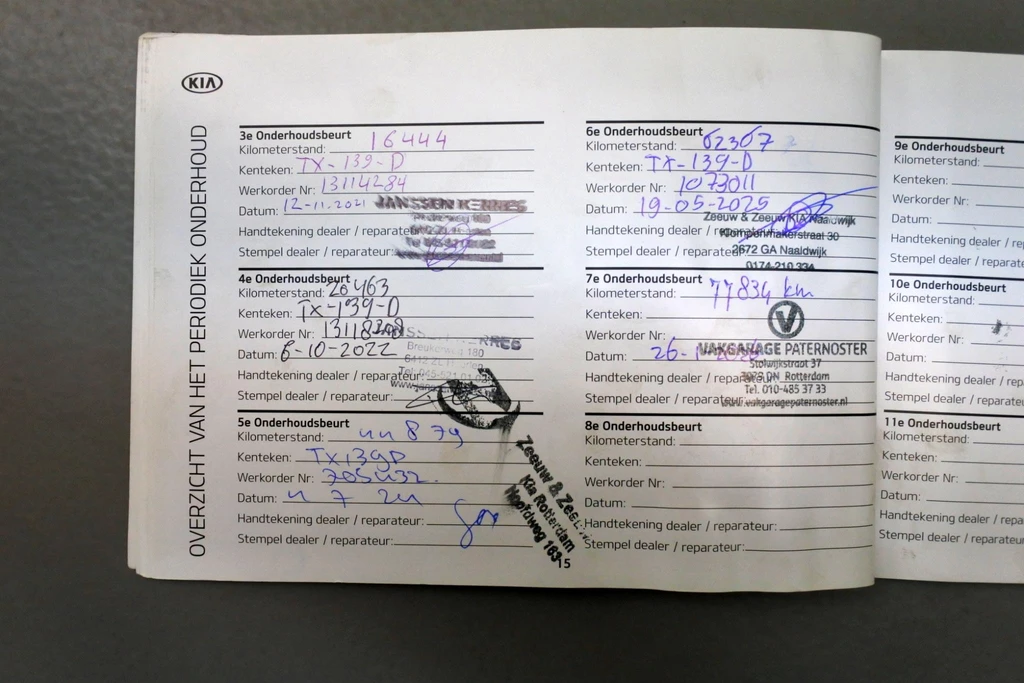 KIA
OVERZICHT VAN HET PERIODIEK ONDERHOUD
3e Onderhoudsbeurt
Kilometerstand: 16444
Kenteken: TX-139-D
Werkorder Nr: 13114284
Datum: 12-11.2021
JANSSEN KERRES
Handtekening dealer / reparateur:
Stempel dealer / reparateur:
4e Onderhoudsbeurt
Kilometerstand: 26463
Kenteken: TX-139-D
Werkorder Nr: 13118308
Datum: 6-10-2022
Breukerweg 180
Handtekening dealer / reparateur:
Stempel dealer / reparateur:
5e Onderhoudsbeurt
Kilometerstand: 44879
Kenteken: TX139D
Werkorder Nr: 705432.
Datum: 4 7 24
Handtekening dealer / reparateur:
Stempel dealer / reparateur:
Zeeuw & Zeeuw
Kia Rotterdam
Hoofdweg 163
15
6e Onderhoudsbeurt
Kilometerstand: 62367
Kenteken: TX-139-D
Werkorder Nr: 1073011
Datum: 19-05-2025
Zeeuw & Zeeuw KIA Naaldwijk
Handtekening dealer / reparateur:
Klompenmakerstraat 30
2672 GA Naaldwijk
Stempel dealer / reparateur:
0174-210 334
7e Onderhoudsbeurt
Kilometerstand: 77834 km
Kenteken:
Werkorder Nr:
Datum: 26-1-
VAKGARAGE PATERNOSTER
Stolwijkstraat 37
Handtekening dealer / reparateur:
Rotterdam
Tel. 010-485 37 33
Stempel dealer / reparateur:
www.vakgaragepaternoster.nl
8e Onderhoudsbeurt
Kilometerstand:
Kenteken:
Werkorder Nr:
Datum:
Handtekening dealer / reparateur:
Stempel dealer / reparateur:
9e Onderhoudsbeurt
Kilometerstand:
Kenteken:
Werkorder Nr:
Datum:
Handtekening dealer / rep
Stempel dealer / reparate
10e Onderhoudsbeurt
Kilometerstand:
Kenteken:
Werkorder Nr:
Datum:
Handtekening dealer / rep
Stempel dealer / reparat
11e Onderhoudsbeurt
Kilometerstand:
Kenteken:
Werkorder Nr:
Datum:
Handtekening dealer / re
Stempel dealer / reparat